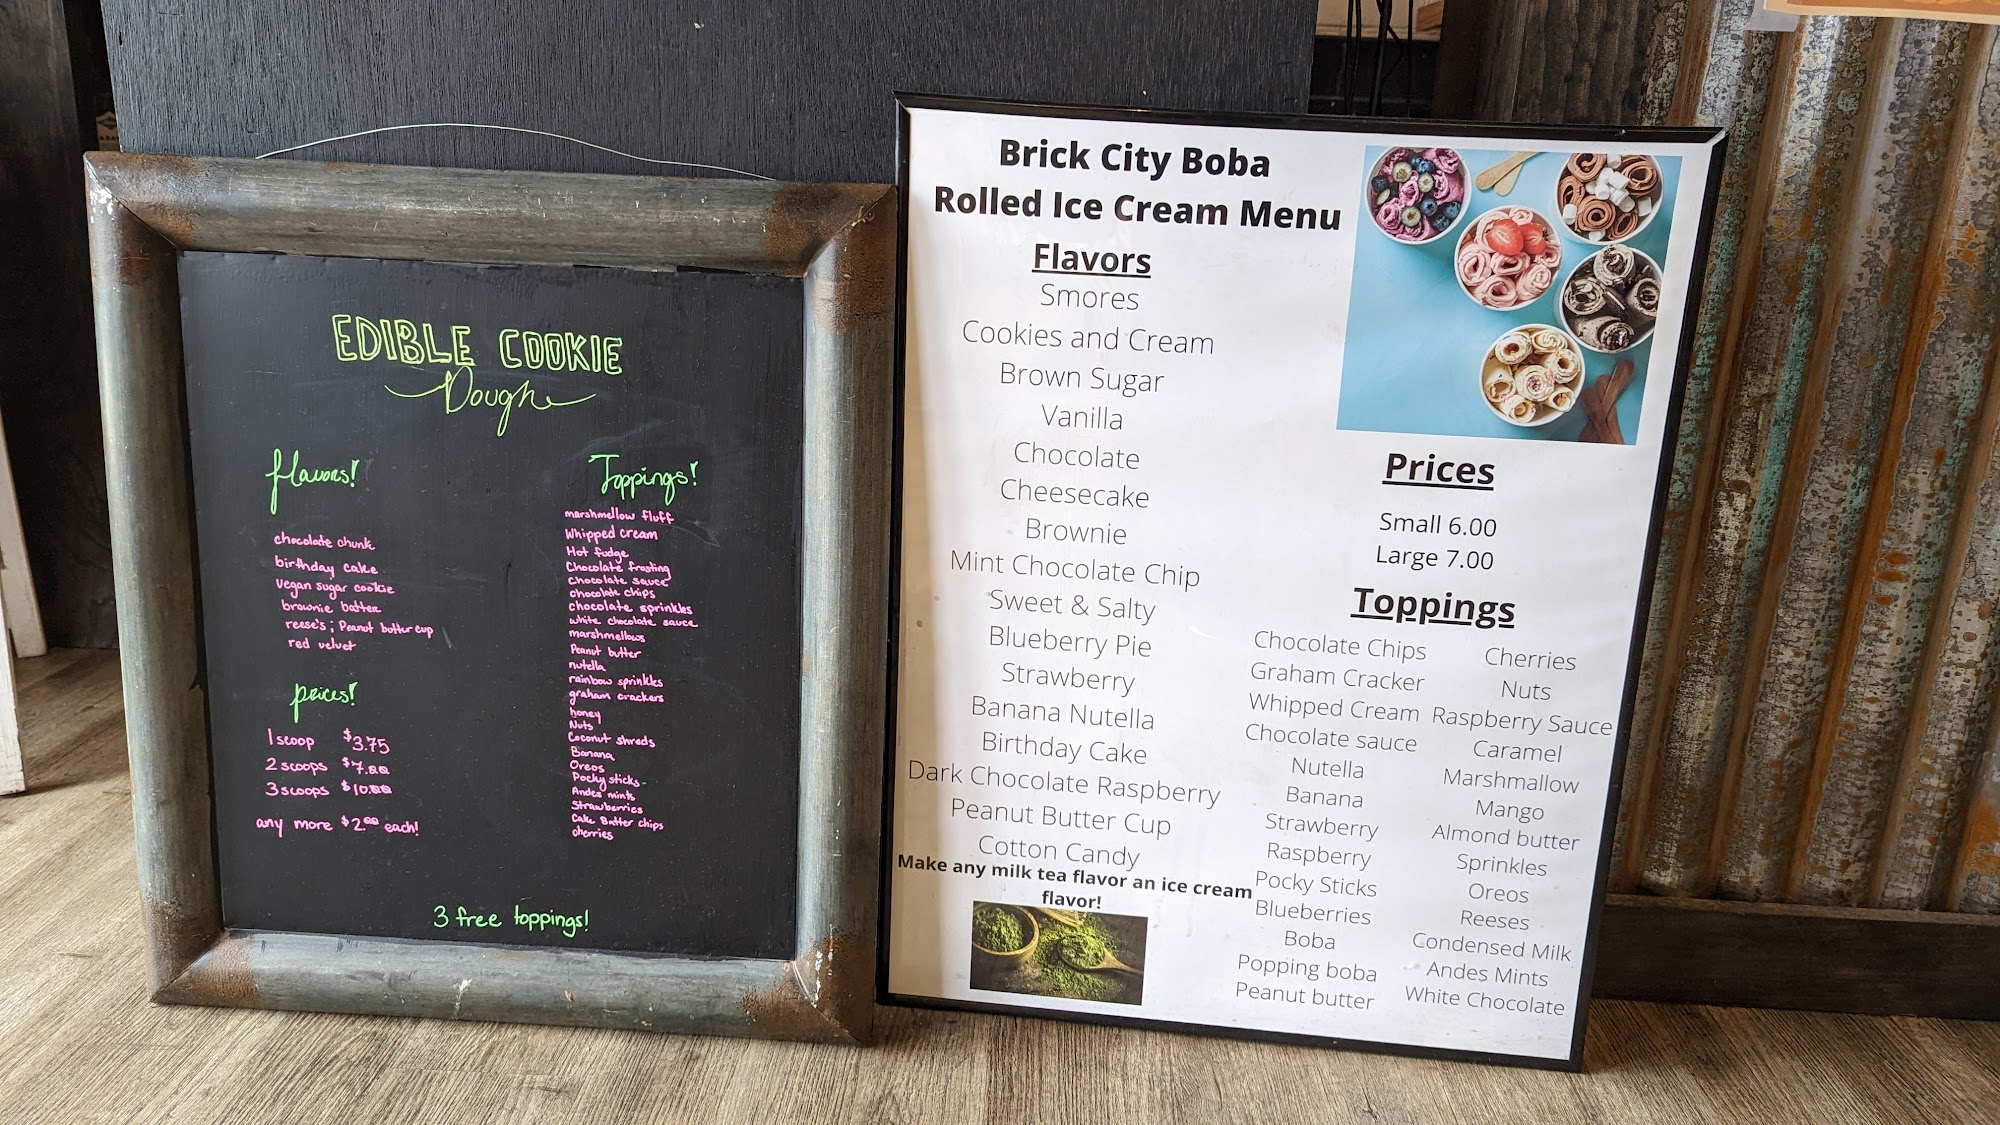 EDIBLE COOKIE
Dough
flavors!
chocolate chunk
birthday cake
vegan sugar cookie
brownie batter
reese's ; Peanut butter cup
red velvet
prices!
1 scoop $3.75
2 scoops $7.00
3 scoops $10.00
any more $2.00 each!
Toppings!
marshmellow fluff
Whipped cream
Hot fudge
Chocolate frosting
chocolate sauce
chocolate chips
chocolate sprinkles
white chocolate sauce
marshmellows
Peanut butter
nutella
rainbow sprinkles
graham crackers
honey
Nuts
Coconut shreds
Banana
Oreos
Pocky sticks-
Andes mints
Strawberries
Cake Batter chips
cherries
3 free toppings!
Brick City Boba
Rolled Ice Cream Menu
Flavors
Smores
Cookies and Cream
Brown Sugar
Vanilla
Chocolate
Cheesecake
Brownie
Mint Chocolate Chip
Sweet & Salty
Blueberry Pie
Strawberry
Banana Nutella
Birthday Cake
Dark Chocolate Raspberry
Peanut Butter Cup
Cotton Candy
Make any milk tea flavor an ice cream
flavor!
Prices
Small 6.00
Large 7.00
Toppings
Chocolate Chips
Graham Cracker
Whipped Cream
Chocolate sauce
Nutella
Banana
Strawberry
Raspberry
Pocky Sticks
Blueberries
Boba
Popping boba
Peanut butter
Cherries
Nuts
Raspberry Sauce
Caramel
Marshmallow
Mango
Almond butter
Sprinkles
Oreos
Reeses
Condensed Milk
Andes Mints
White Chocolate